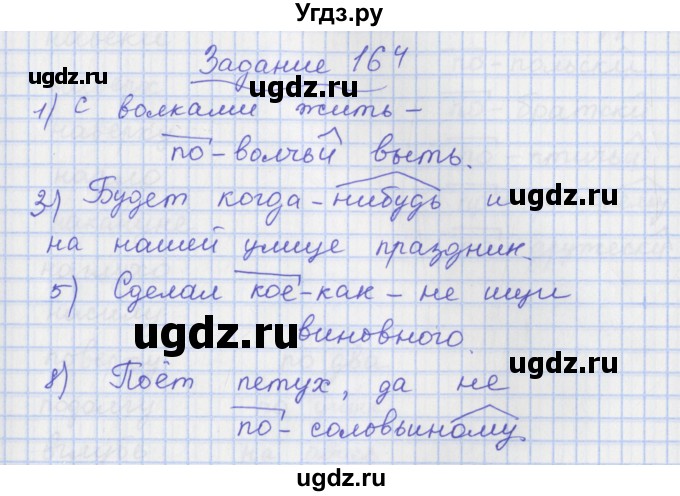 Угдз.ру
Задание 164
ugdz.ru
ugdz.ru
ugdz.ru
1) С волками жить -
по-волчьи выть.
3) Будет когда-нибудь и
ugdz.ru
на нашей улице праздник.
5) Сделал кое-как - не ищи
ugdz.ru
виновного.
ugdz.ru
8) Поёт петух, да не
ugdz.ru
по-соловьиному
ugdz.ru